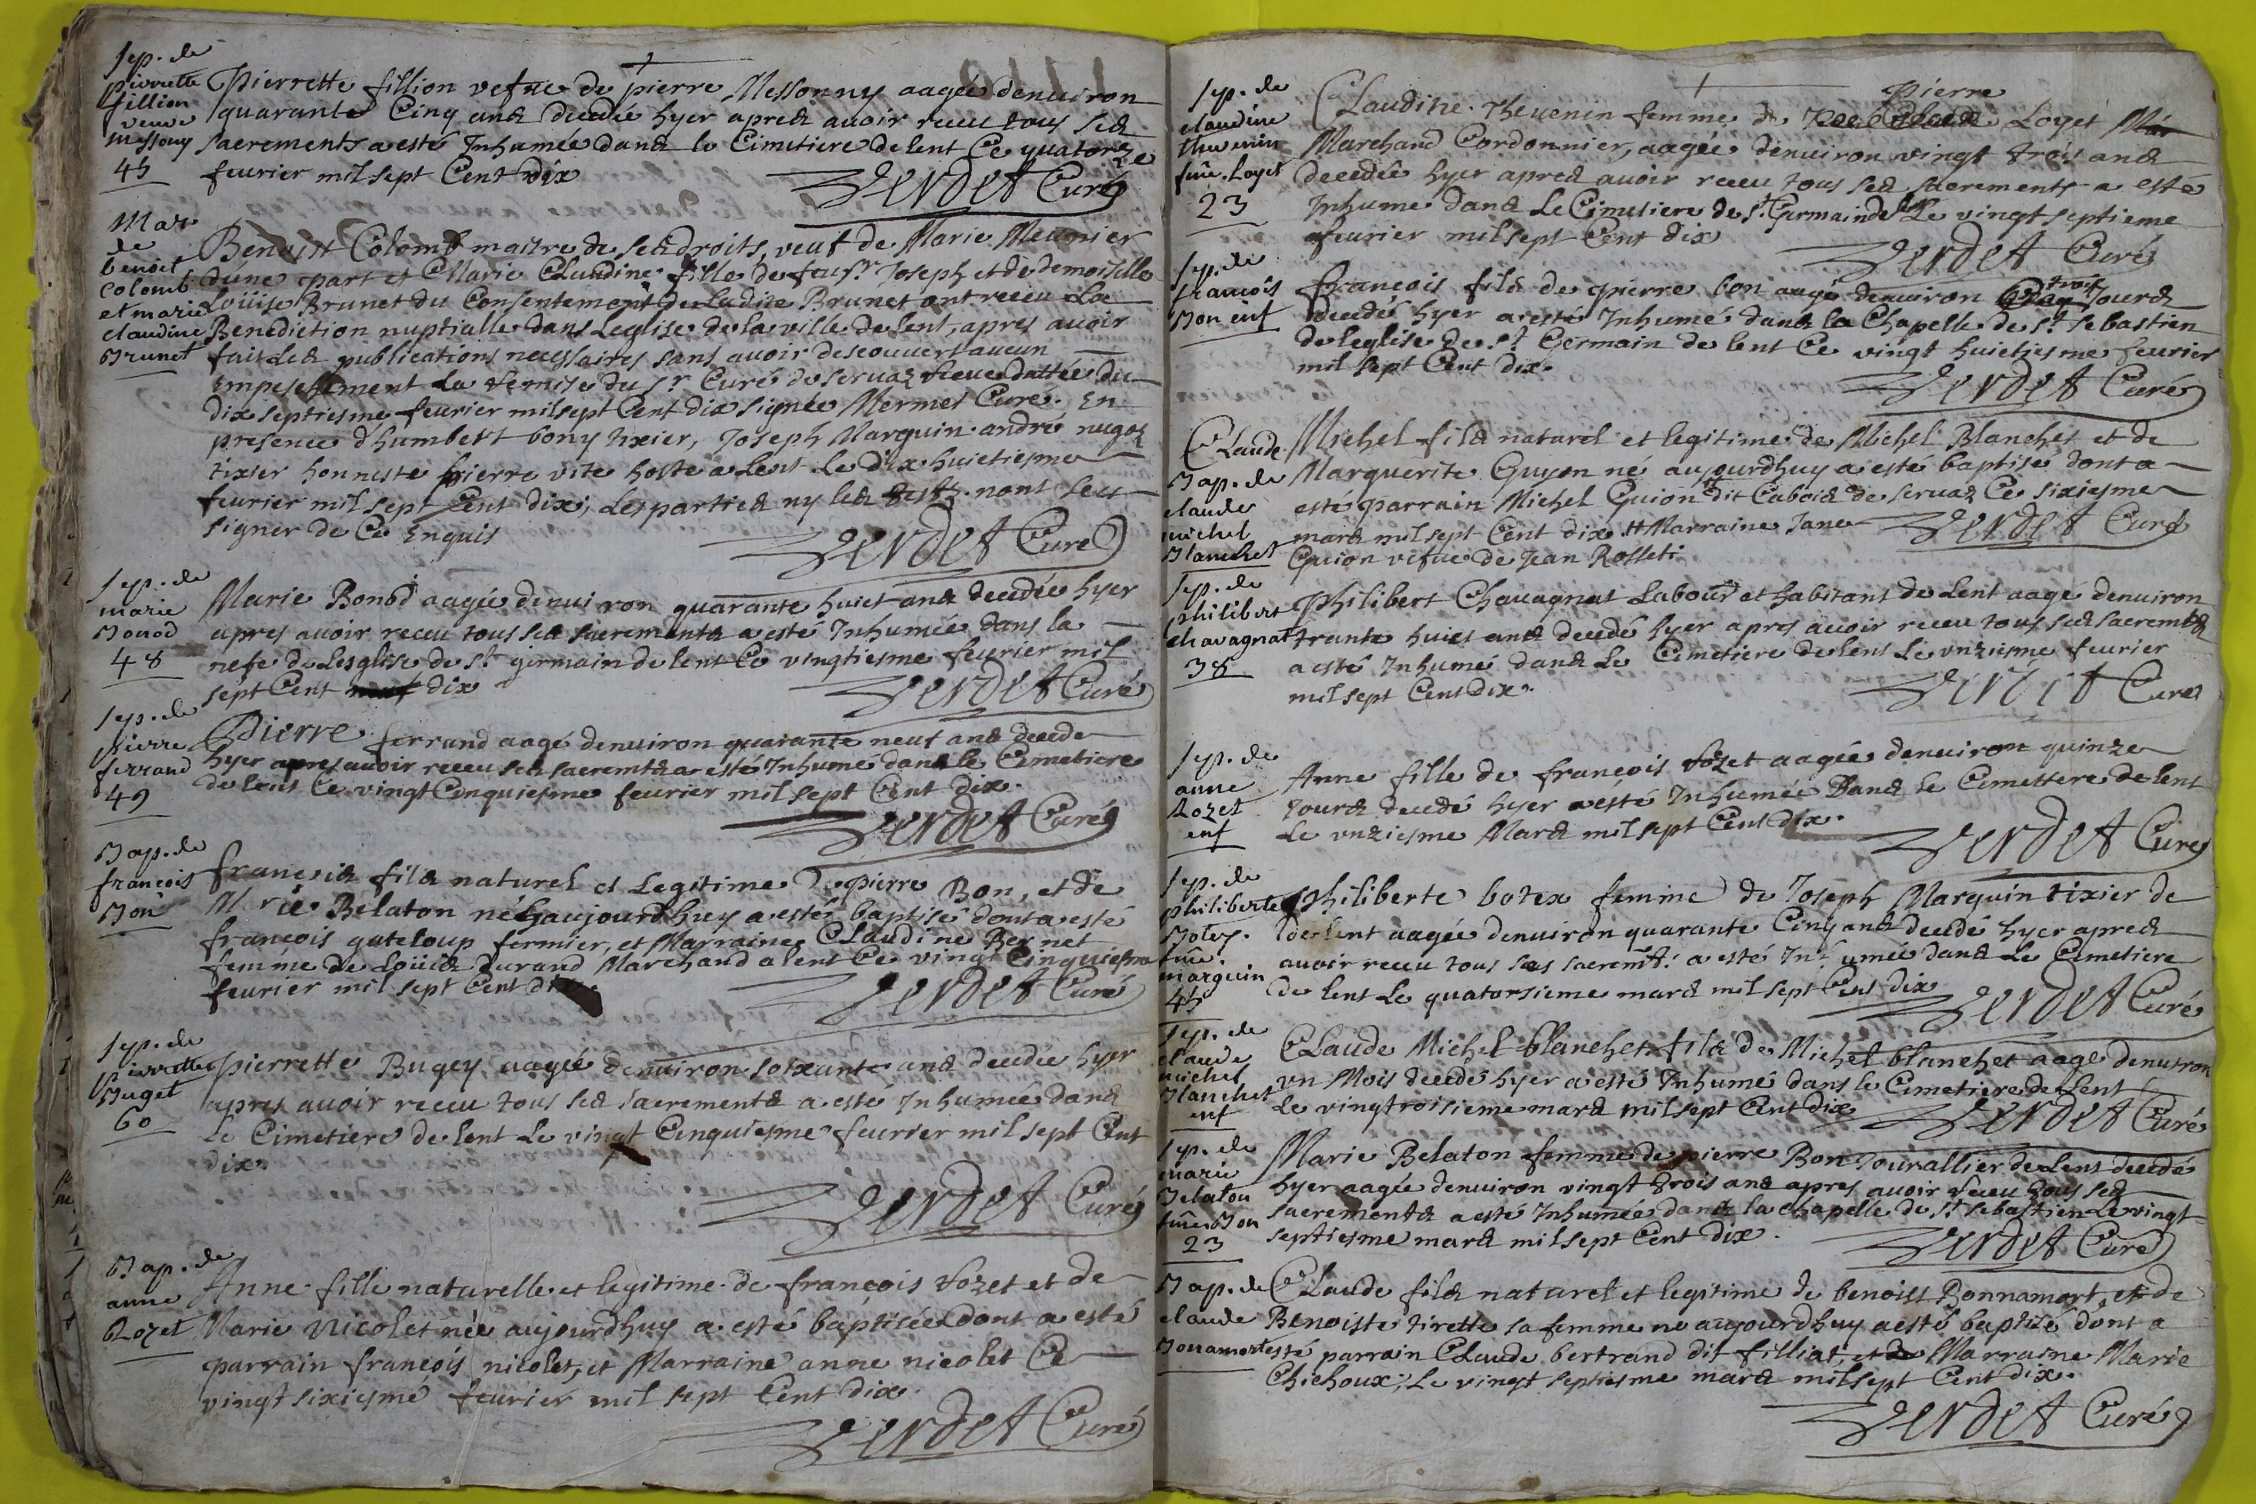 Sep. de
pierrette
fillion
veuve
messony
45
Pierrette fillion vefue de pierre Messonny aagée denuiron
quarante Cinq ans decedée hyer apres auoir receu tous ses
sacrements a esté Inhumée dans le Cimitiere de lent Ce quatorze
feurier mil sept Cent dix
Verdet Curé
Mar
de
benoit
Colomb
et marie
claudine
Brunet
Benoist Colomb maitre de ses droits, veuf de Marie Meunier
dune part et Marie Claudine fille de feu sr Joseph et de demoiselle
Loüise Brunet du Consentement de ladite Brunet ont receu La
Benediction nuptialle dans Leglise de la ville de lent, apres auoir
fait Les publications necessaires sans auoir descouuert aucun
Empeschement La remise du sr Curé de seruaz receue dattée du
dix septiesme feurier mil sept Cent dix signée Mermet Curé. En
presence d humbert bony tixier, Joseph Marquin andré
tixier honneste pierre vite hoste a lent Le dix huictiesme
feurier mil sept Cent dix, Les parties ny les tests. nont sceu
signer de Ce Enquis
Verdet Curé
Sep. de
marie
Bonod
48
Marie Bonod aagée denuiron quarante huict ans decedée hyer
apres auoir receu tous ses sacrements a esté Inhumée dans la
nefe de Lesglise de st germain de lent Ce vingtiesme feurier mil
sept Cent neuf dix
Verdet Curé
Sep. de
pierre
ferrand
49
Pierre ferrand aagé denuiron quarante neuf ans decede
hyer apres auoir receu ses sacremts a esté Inhume dans le Cimetiere
de lent Ce vingt Cinquiesme feurier mil sept Cent dix.
Verdet Curé
Bap. de
francois
Bon
francois fils naturel et Legitime De pierre Bon, et de
Marie Belaton né aujourdhuy a esté baptisé dont a esté
francois gateloup fermier, et Marraine Claudine Bernet
femme de Loüis durand Marchand a lent Ce vingt Cinquiesme
feurier mil sept Cent dix.
Verdet Curé
Sep. de
Pierrette
Buget
60
pierrette Bugey aagée denuiron soixante ans decedée hyer
apres auoir receu tous ses sacrements a esté Inhumée dans
Le Cimetiere de lent Le vingt Cinquiesme feurier mil sept Cent
dix.
Verdet Curé
Bap. de
anne
Rozet
Anne fille naturelle et legitime de francois Rozet et de
Marie Nicolet née aujourdhuy a esté baptisée dont a esté
parrain francois nicolet, et Marraine anne nicolet Ce
vingt sixiesme feurier mil sept Cent dix.
Verdet Curé
Sep. de
claudine
theuenin
fme. Loyet
23
pierre
Claudine Theuenin femme de Loyet
Marchand Cordonnier, aagée denuiron vingt trois ans
decedée hyer apres auoir receu tous ses sacrements a esté
Inhume dans Le Cimetiere de st Germain de Lent Le vingt septieme
feurier mil sept Cent dix
Verdet Curé
Sep. de
francois
Bon enf
francois fils de pierre bon aagé denuiron trois Jours
decedé hyer a esté Inhumé dans la Chapelle de st sebastien
de leglise de st Germain de lent Ce vingt huictiesme feurier
mil sept Cent dix.
Verdet Curé
Bap. de
claude
michel
Blanchet
Claude Michel fils naturel et legitime de Michel Blanchet et de
Marguerite Guyon né aujourdhuy a esté baptisé dont a
esté parrain Michel Guion dit Cabois de seruaz Ce sixiesme
mars mil sept Cent dix # Marraine Jane
Verdet Curé
Guion vefue de Jean Rosset.
Sep. de
philibert
chavagnat
38
Philibert Chauagnat Labour et habitant de Lent aagé denuiron
trante huict ans decedé hyer apres auoir receu tous ses sacremts
a esté Inhumé dans Le Cimetiere de lent Le vnziesme feurier
mil sept Cent dix.
Verdet Curé
Sep. de
anne
Rozet
enf
Anne fille de francois Rozet aagée denuiron quinze
Jours decedé hyer a esté Inhumée Dans le Cimettere de lent
Le vnziesme Mars mil sept Cent dix.
Verdet Curé
Sep. de
philiberte
Botex.
fme.
marquin
45
Philiberte botex femme de Joseph Marquin tixier de
de lent aagée denuiron quarante Cinq ans decedé hyer apres
auoir receu tous ses sacremts. a esté Inhumée dans Le Cimetiere
de lent Le quatorsieme mars mil sept Cent dix
Verdet Curé
Sep. de
claude
michel
Blanchet
enf
Claude Michel blanchet fils de Michel blanchet aagé denuiron
vn Mois decedé hyer a esté Inhumé dans le Cimetiere de Lent
Le vingtroisieme mars mil sept Cent dix
Verdet Curé
Sep. de
marie
Belaton
fme Bon
23
Marie Belaton femme de pierre Bon Jourallier de Lent decedé
hyer aagée denuiron vingt trois ans apres auoir receu tous ses
sacrements a esté Inhumée dans la chapelle de st sebastien Le vingt
septiesme mars mil sept Cent dix.
Verdet Curé
Bap. de
claude
Bonamort
Claude fils naturel et legitime de benoist Bonnamort, et de
Benoiste tirette sa femme né aujourdhuy a esté baptizé dont a
esté parrain Claude bertrand dit filliat, et Marraine Marie
Chichoux, Le vingt septiesme mars mil sept Cent dix.
Verdet Curé